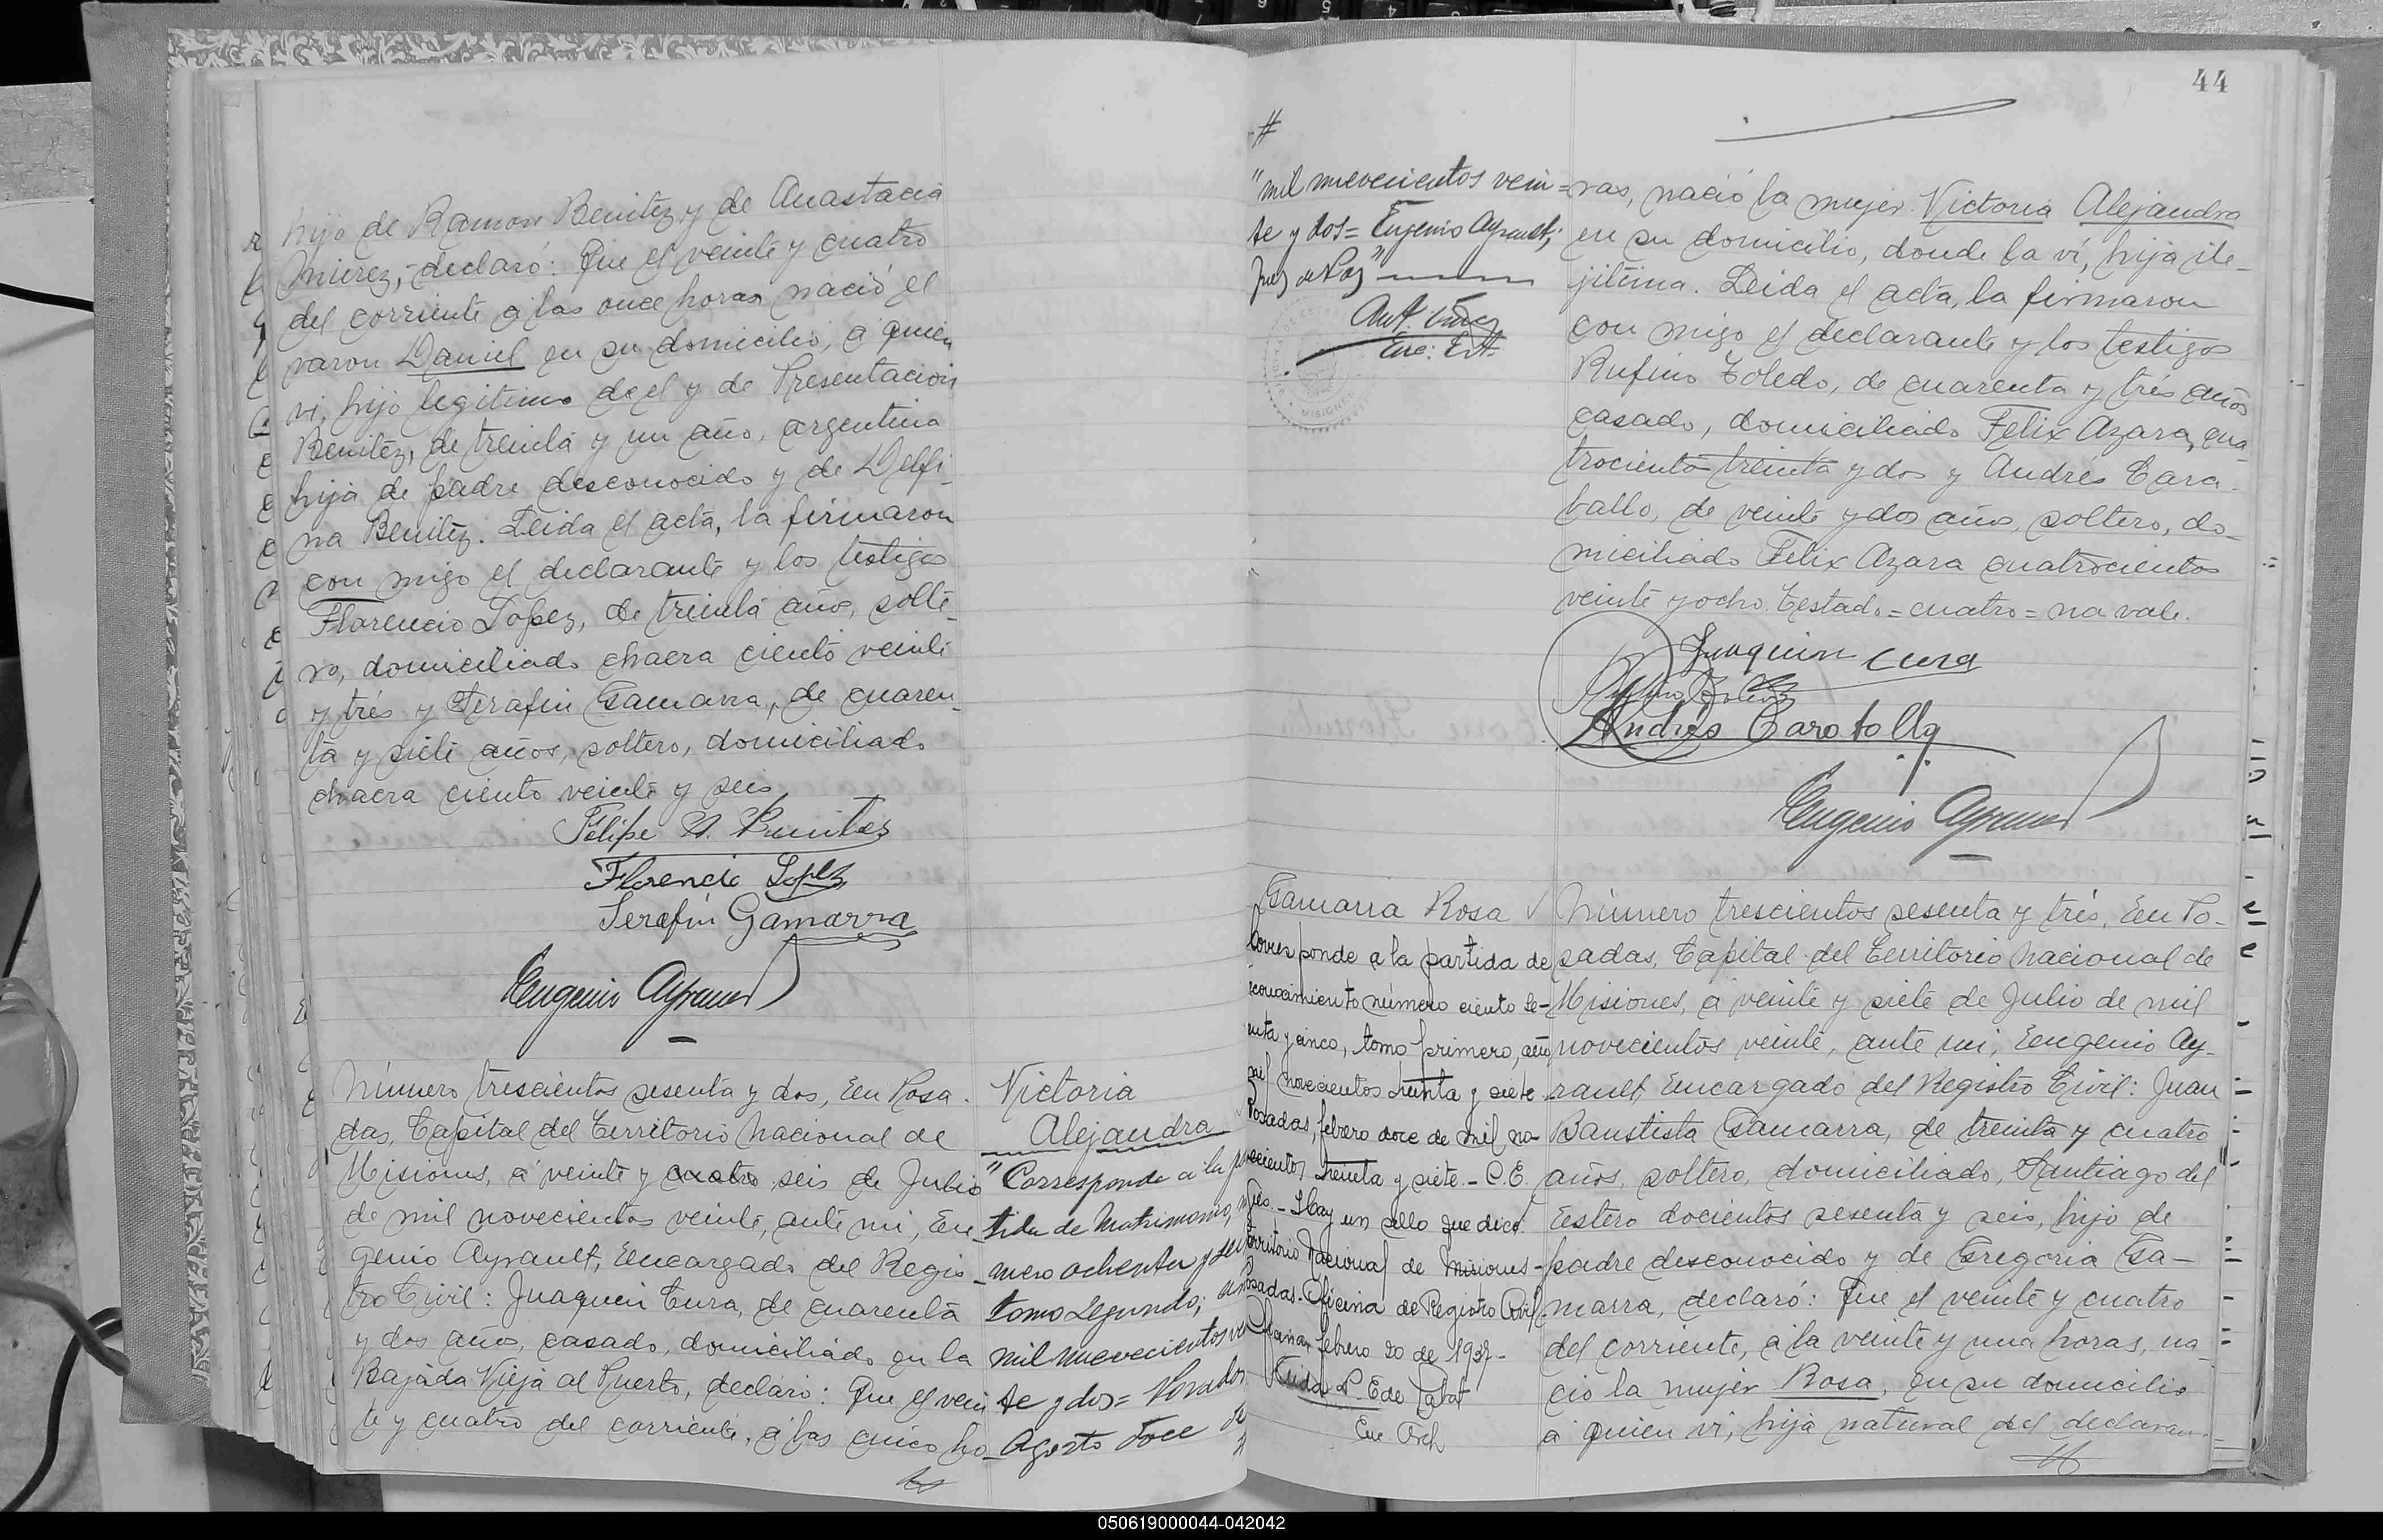 hijo de Ramon Benitez y de Anastacia
declaró: Que el veinte y cuatro
del corriente a las once horas nació el
varon Daniel en su domicilio, a quien
vi, hijo legitimo de el y de Presentacion
Benitez, de treinta y un año, argentina
hija de padre desconocido y de Delfi-
na Benitez. Leida el acta, la firmaron
con migo el declarante y los testigos
Florencio Lopez, de treinta años, solte-
ro, domiciliado chacra ciento veinte
y trés y Serafin Gamarra, de cuaren-
ta y siete años, soltero, domiciliado
chacra ciento veinte y seis
Felipe Benites
Florencio Lopez
Serafin Gamarra
Eugenio Ayrault
Número trescientos sesenta y dos, En Posa-
das, Capital del Territorio Nacional de
Misiones, a veinte y cuatro seis de Julio
de mil novecientos veinte, ante mi, Eu-
genio Ayrault, Encargado del Regis-
tro Civil: Juaquin Cura, de cuarenta
y dos años, casado, domiciliado en la
Bajada Vieja al Puerto, declaró: Que el vein
te y cuatro del corriente, a las cinco ho-
Victoria
Alejandra
"Corresponde a la
tida de Matrimonio,
mero ochenta y
tomo Segundo;
mil nuevecientos
te y dos = Posadas
Agosto doce de
#
44
#
"mil nuevecientos vein=
te y dos = Eugenio Ayrault;
Juez de Paz"
MISIONES
ras, nació la mujer Victoria Alejandra
en su domicilio, donde la ví, hija ile-
jitima. Leida el acta, la firmaron
con migo el declarante y los testigos
Rufino Toledo, de cuarenta y trés años
casado, domiciliado Felix Azara, cua
trocienta treinta y dos y Andrés Cara-
ballo, de veinte y dos años, soltero, do-
miciliado Felix Azara cuatrocientos
veinte y ocho. Testado = cuatro = no vale.
Juaquin Cura
Rufino Toledo
Andrés
Eugenio Ayrault
Gamarra Rosa
Corresponde a la partida de
econocimiento número ciento se-
enta y cinco, tomo primero, año
mil novecientos treinta y siete
Posadas, febrero doce de mil no-
vecientos treinta y siete. - C.E.
Hay un sello que dice:
Territorio Nacional de Misiones -
Posadas - Oficina de Registro Civil
febrero 20 de 1937 -
Enc. Arch
Número trescientos sesenta y trés, En Po-
sadas, Capital del Territorio Nacional de
Misiones, a veinte y siete de Julio de mil
novecientos veinte, ante mi, Eugenio Ay-
rault, Encargado del Registro Civil: Juan
Baustista Gamarra, de treinta y cuatro
años, soltero, domiciliado, Santiago del
Estero docientos sesenta y seis, hijo de
padre desconocido y de Gregoria Ga-
marra, declaró: Que el veinte y cuatro
del corriente, a la veinte y una horas, na-
ció la mujer Rosa, en su domicilio
a quien vi, hija natural del declaran-
050619000044-042042